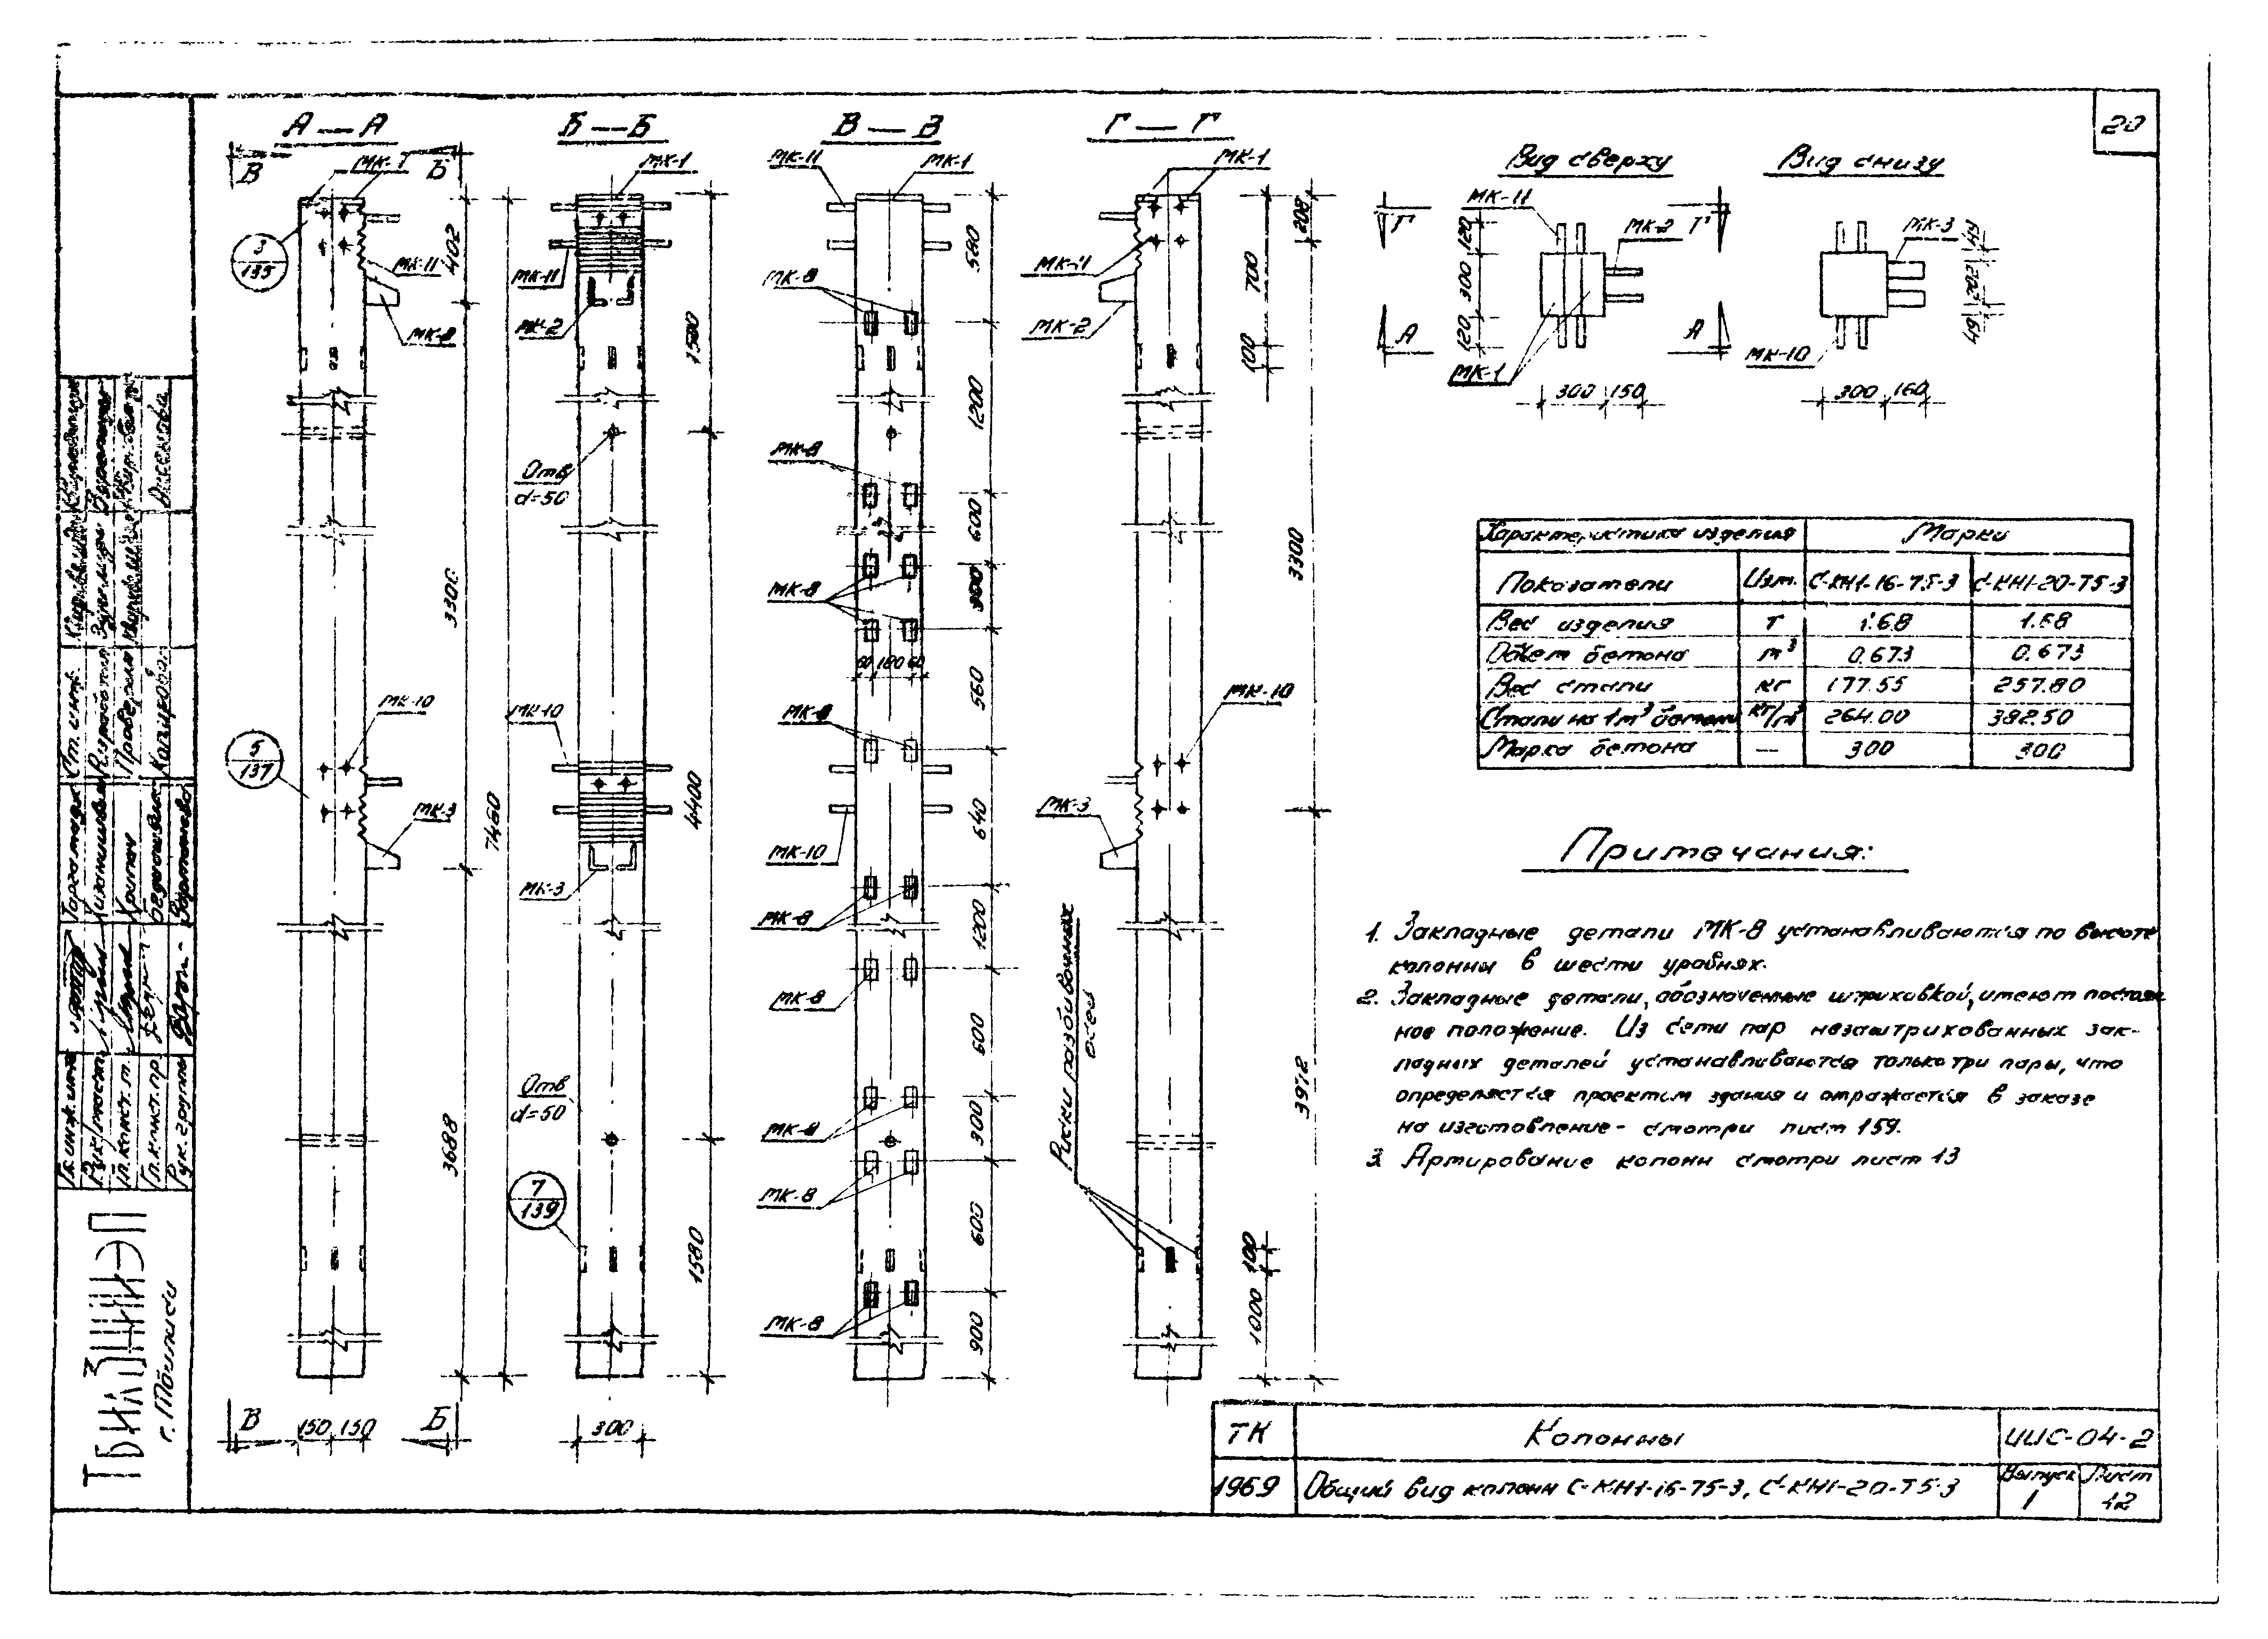 20
А — А
Б — Б
В — В
Г — Г
Вид сверху
Вид снизу
В
МК-1
Б
МК-1
МК-11
МК-1
МК-1
402
3
135
МК-11
МК-11
МК-2
МК-8
580
МК-11
МК-2
700
100
208
1580
Отв
d=50
1200
МК-8
600
МК-8
300
60 180 60
560
3300
3300
МК-10
МК-10
МК-8
МК-10
5
137
МК-3
7460
4400
МК-3
640
МК-10
МК-8
1200
МК-3
МК-8
600
3688
Отв
d=50
МК-8
300
МК-8
7
139
1580
600
МК-8
900
Риски разбивочных
осей
3952
100
1000
В
150 150
Б
300
МК-11
МК-2
Г
Г
120
300
120
А
А
МК-1
300 150
МК-3
МК-10
300 160
64
64
Характеристика изделия Марки
Показатели Изм. С-КН1-16-75-3 С-КН1-20-75-3
Вес изделия т 1.68 1.68
Объем бетона м³ 0.673 0.673
Вес стали кг 177.55 257.80
Стали на 1м³ бетона кг/м³ 264.00 382.50
Марка бетона — 300 300
Примечания:
1. Закладные детали МК-8 устанавливаются по высоте
колонны в шести уровнях.
2. Закладные детали, обозначенные штриховкой, имеют постоян-
ное положение. Из сети пар незаштрихованных зак-
ладных деталей устанавливаются только три пары, что
определяется проектом здания и отражается в заказе
на изготовление - смотри лист 159.
3. Армирование колонн смотри лист 13
ТК Колонны ИИС-04-2
1969 Общий вид колонн С-КН1-16-75-3, С-КН1-20-75-3
Выпуск Лист
1 12
ТбилЗНИИЭП
г. Тбилиси
Гл. инж. инст.
Рук. маст.
Гл. конст. м.
Гл. конст. пр.
Рук. группы
Ст. инж.
Разработал
Проверил
Копировал